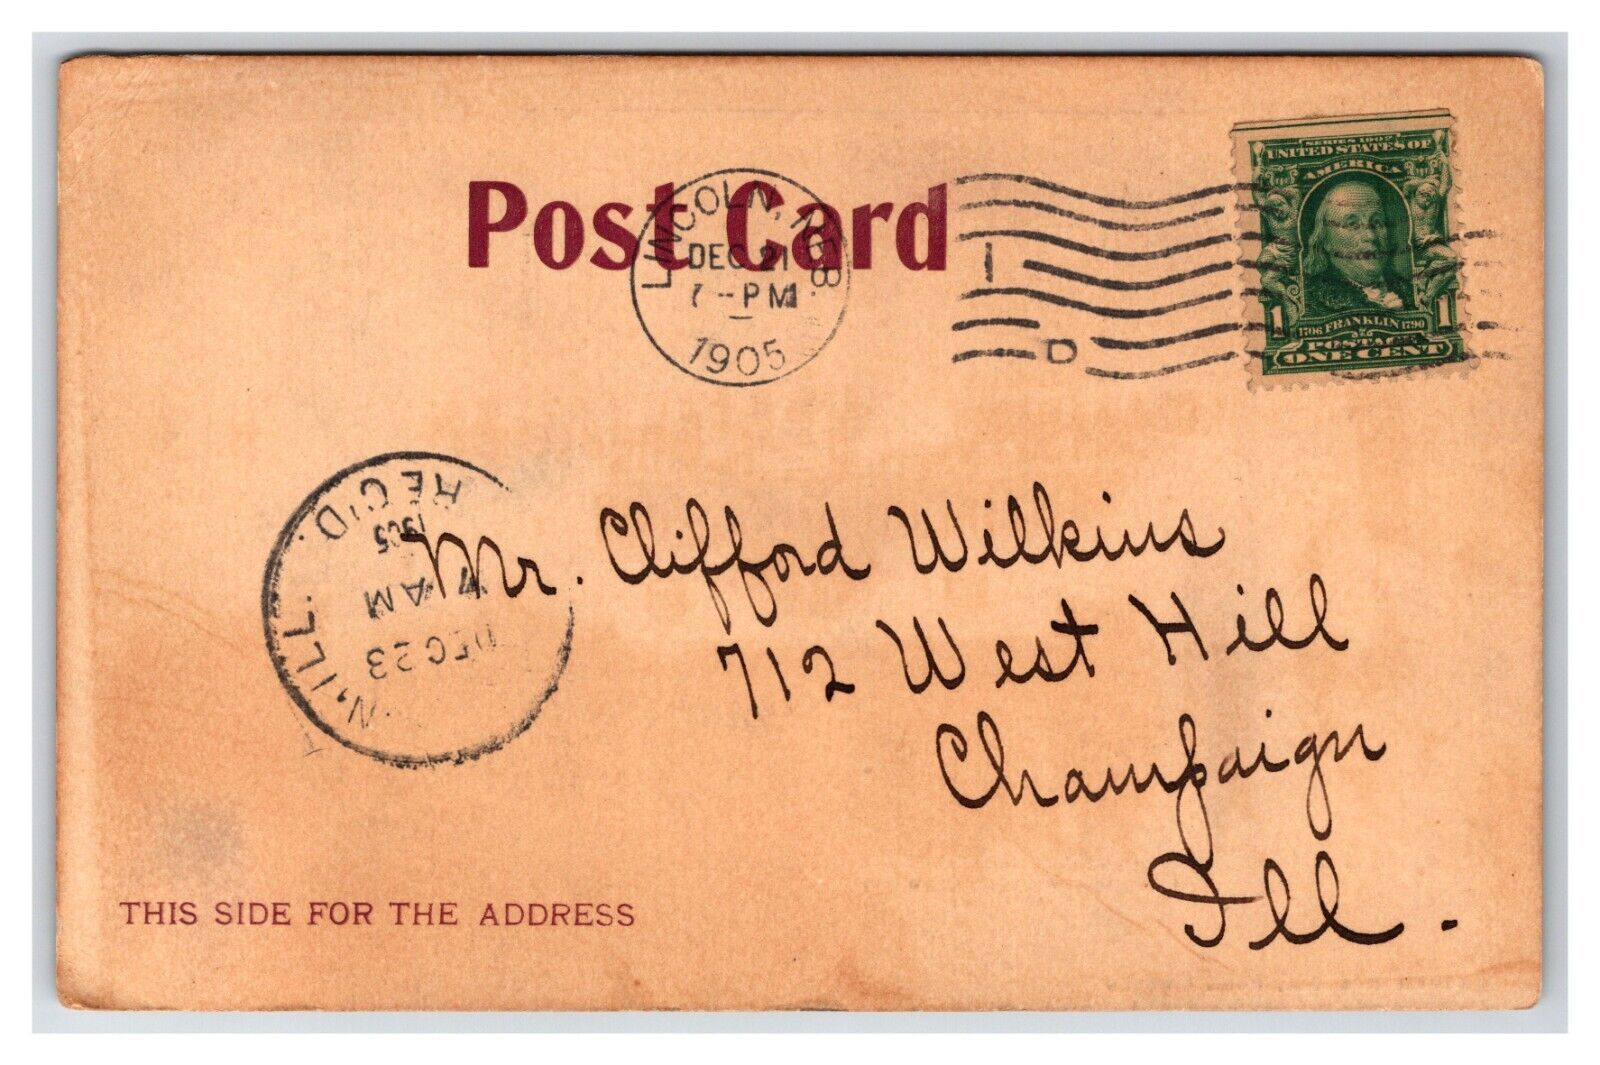 Post Card
LINCOLN, NEB.
DEC 21
7-PM
1905
I
D
SERIES 1902
UNITED STATES OF
AMERICA
1706 FRANKLIN 1790
1 1
POSTAGE
ONE CENT
REC'D.
1905
7 AM
DEC 23
N, ILL.
Mr. Clifford Wilkins
712 West Hill
Champaign
Ill.
THIS SIDE FOR THE ADDRESS